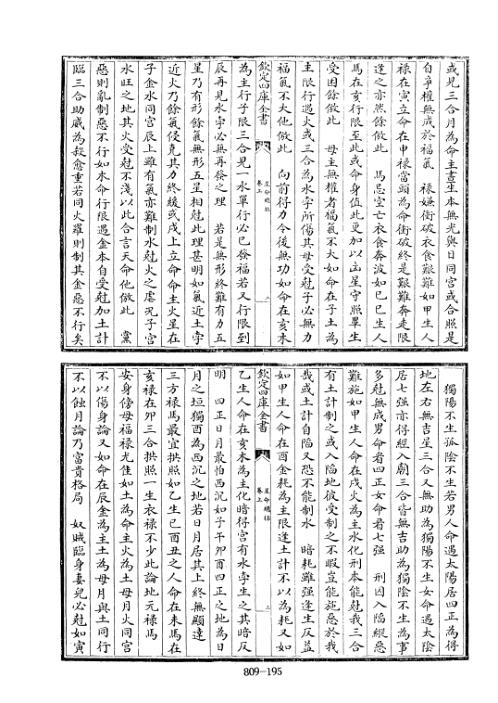 或見三合月為命主晝生本無光與日同宮或合照是
自專權無成於福氣　祿嫌衝破衣食艱難如甲生人
祿在寅立命在申祿當頭為命衝破終是艱難奔走限
逢之亦然餘倣此　馬忌空亡衣食奔波如己巳生人
馬在亥行限至此或命身值此更加以凶星守照畢生
受困餘倣此　母主無權者福氣不大如命在子土為
主限行遇火或三合為水孛所傷其母受尅子必無力
福氣不大他倣此　向前得力今後無功如命在亥木
欽定四庫全書
星命總括
卷上
為主行子限三合見一水單行必已發福若又行限到
辰再見水孛必無再發之理　若是無形終難有力五
星乃有形餘氣無形五星相尅此理甚明如氣近土孛
近火乃餘氣侵竟其力終緩或戌上立命命主火星在
子金水同宮辰上雖有氣亦難制水尅火之虐況子宮
水旺之地其火受尅不淺以此合言天命他倣此　黨
惡則亂制惡不行如木命行限遇金本自受尅加土計
臨三合助威為殺愈重若同火羅則制其金惡不行矣
獨陽不生孤陰不生若男人命遇太陽居四正為得
地左右無吉星三合又無助為獨陽不生女命遇太陰
居七強亦得經入廟三合皆無吉助為獨陰不生為事
多尅無成男命看四正女命看七強　刑因入陷縱惡
難施如甲生人命在戌火為主水化刑本能尅我三合
有土計制之或入陷地彼受制之不暇豈能施惡於我
哉或土計自陷又恐不能制水　暗耗雖强逢生反益
如甲生人命在酉金耗為主限逢土計不以為耗又如
欽定四庫全書
星命總括
卷上
乙生人命在亥木為主化暗得宮有水孛生之其暗反
明　四正日月最怕西沉如子午卯酉四正之地為日
月之垣獨酉為西沉之地若日月居其上終無顯達
三方祿馬最宜拱照如乙生巳酉丑之人命在未馬在
亥祿在卯三合拱照一生衣祿不少此論地元祿馬
安身傍母福祿尤佳如土為命主火為土母月火同宮
不以傷身論又如命在辰金為主土為母月與土同行
不以蝕月論乃富貴格局　奴賊臨身妻兒必尅如寅
809—195